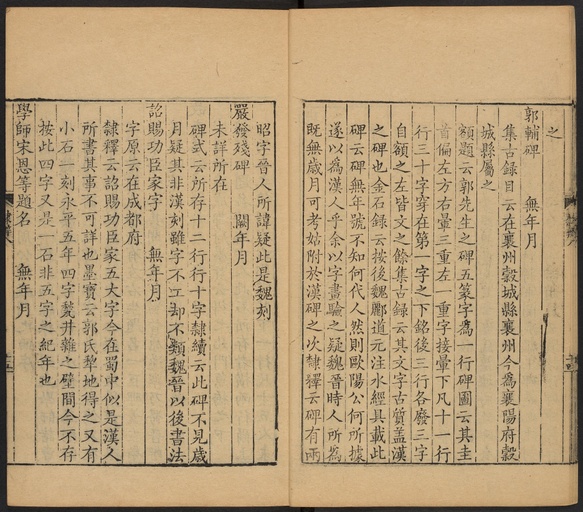 之
郭輔碑　無年月
集古錄目云在襄州穀城縣襄州今為襄陽府穀
城縣屬之
額題云郭先生之碑五篆字為一行碑圖云其圭
首偏左方右暈三重左一重字接暈下凡十一行
行三十字穿在第一字之下銘後三行各廢三字
自額之左皆文之餘集古錄云其文字古質蓋漢
之碑也金石錄云按後魏酈道元注水經具載此
碑云碑無年號不知何代人然則歐陽公何所據
遂以為漢人乎余以字畫驗之疑魏晉時人所為
既無歲月可考姑附於漢碑之次隸釋云碑有兩
昭字晉人所諱疑此是魏刻
嚴發殘碑　闕年月
未詳所在
碑式云所存十二行行十字隸續云此碑不見歲
月疑其非漢刻雖字不工却不類魏晉以後書法
詔賜功臣家字　無年月
字原云在成都府
隸釋云詔賜功臣家五大字今在蜀中似是漢人
所書其事不可詳也墨寶云郭氏犂地得之又有
小石一刻永平五年四字甃井雜之壁間今不存
按此四字又是一石非五字之紀年也
學師宋恩等題名　無年月